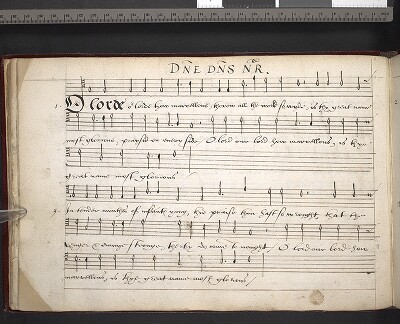 DÑE DÑS ÑR.
1. O lorde o lorde how marvellous, throw all the world so wyde, is thy great name
most glorious, praysed on every side. O lord our lord how marvellous, is thy
great name most glorious
2. In tender mouthes of infants yong, thie praise thou hast so wrought, that thy
strange to nought, O lord our lord how
marvellous, is thye great name most glorious